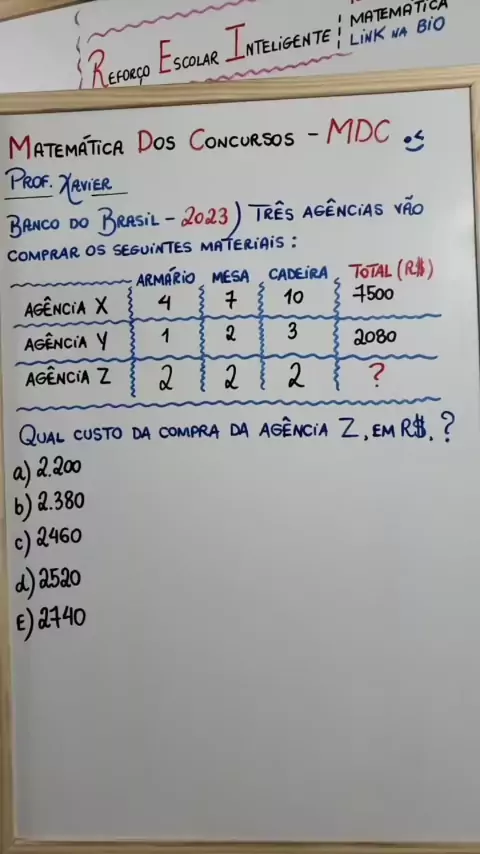 MATEMÁTICA
REFORÇO ESCOLAR INTELIGENTE LINK NA BIO
MATEMÁTICA DOS CONCURSOS - MDC
PROF. XAVIER
BANCO DO BRASIL - 2023) TRÊS AGÊNCIAS VÃO
COMPRAR OS SEGUINTES MATERIAIS:
ARMÁRIO MESA CADEIRA TOTAL (R$)
AGÊNCIA X 4 7 10 7500
AGÊNCIA Y 1 2 3 2080
AGÊNCIA Z 2 2 2 ?
QUAL CUSTO DA COMPRA DA AGÊNCIA Z, EM R$, ?
a) 2.200
b) 2.380
c) 2460
d) 2520
E) 2740